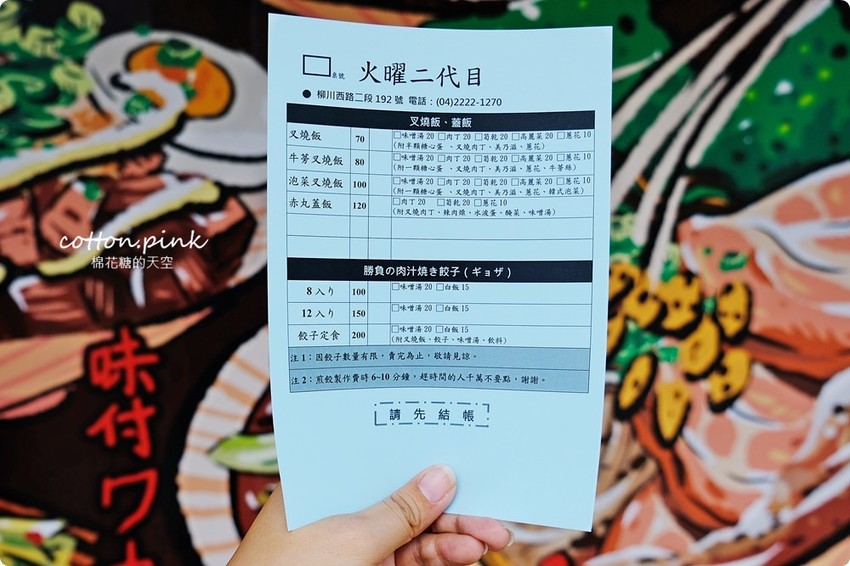 桌號 火曜二代目
● 柳川西路二段 192 號 電話：(04)2222-1270
叉燒飯、蓋飯
叉燒飯 70 □味噌湯 20 □肉丁 20 □筍乾 20 □高麗菜 20 □蔥花 10
(附半顆糖心蛋、叉燒肉丁、美乃滋、蔥花)
牛蒡叉燒飯 80 □味噌湯 20 □肉丁 20 □筍乾 20 □高麗菜 20 □蔥花 10
(附一顆糖心蛋、叉燒肉丁、美乃滋、蔥花、牛蒡絲)
泡菜叉燒飯 100 □味噌湯 20 □肉丁 20 □筍乾 20 □高麗菜 20 □蔥花 10
(附一顆糖心蛋、叉燒肉丁、美乃滋、蔥花、韓式泡菜)
赤丸蓋飯 120 □肉丁 20 □筍乾 20 □蔥花 10
(附叉燒肉丁、辣肉燥、水波蛋、醃菜、味噌湯)
勝負の肉汁焼き餃子 ( ギョザ )
8 入り 100 □味噌湯 20 □白飯 15
12 入り 150 □味噌湯 20 □白飯 15
餃子定食 200 □味噌湯 20 □白飯 15
(附叉燒飯、餃子、味噌湯、飲料)
注 1：因餃子數量有限，賣完為止，敬請見諒。
注 2：煎餃製作費時 6~10 分鐘，趕時間的人千萬不要點，謝謝。
請先結帳
cotton.pink
棉花糖的天空
味付ワ